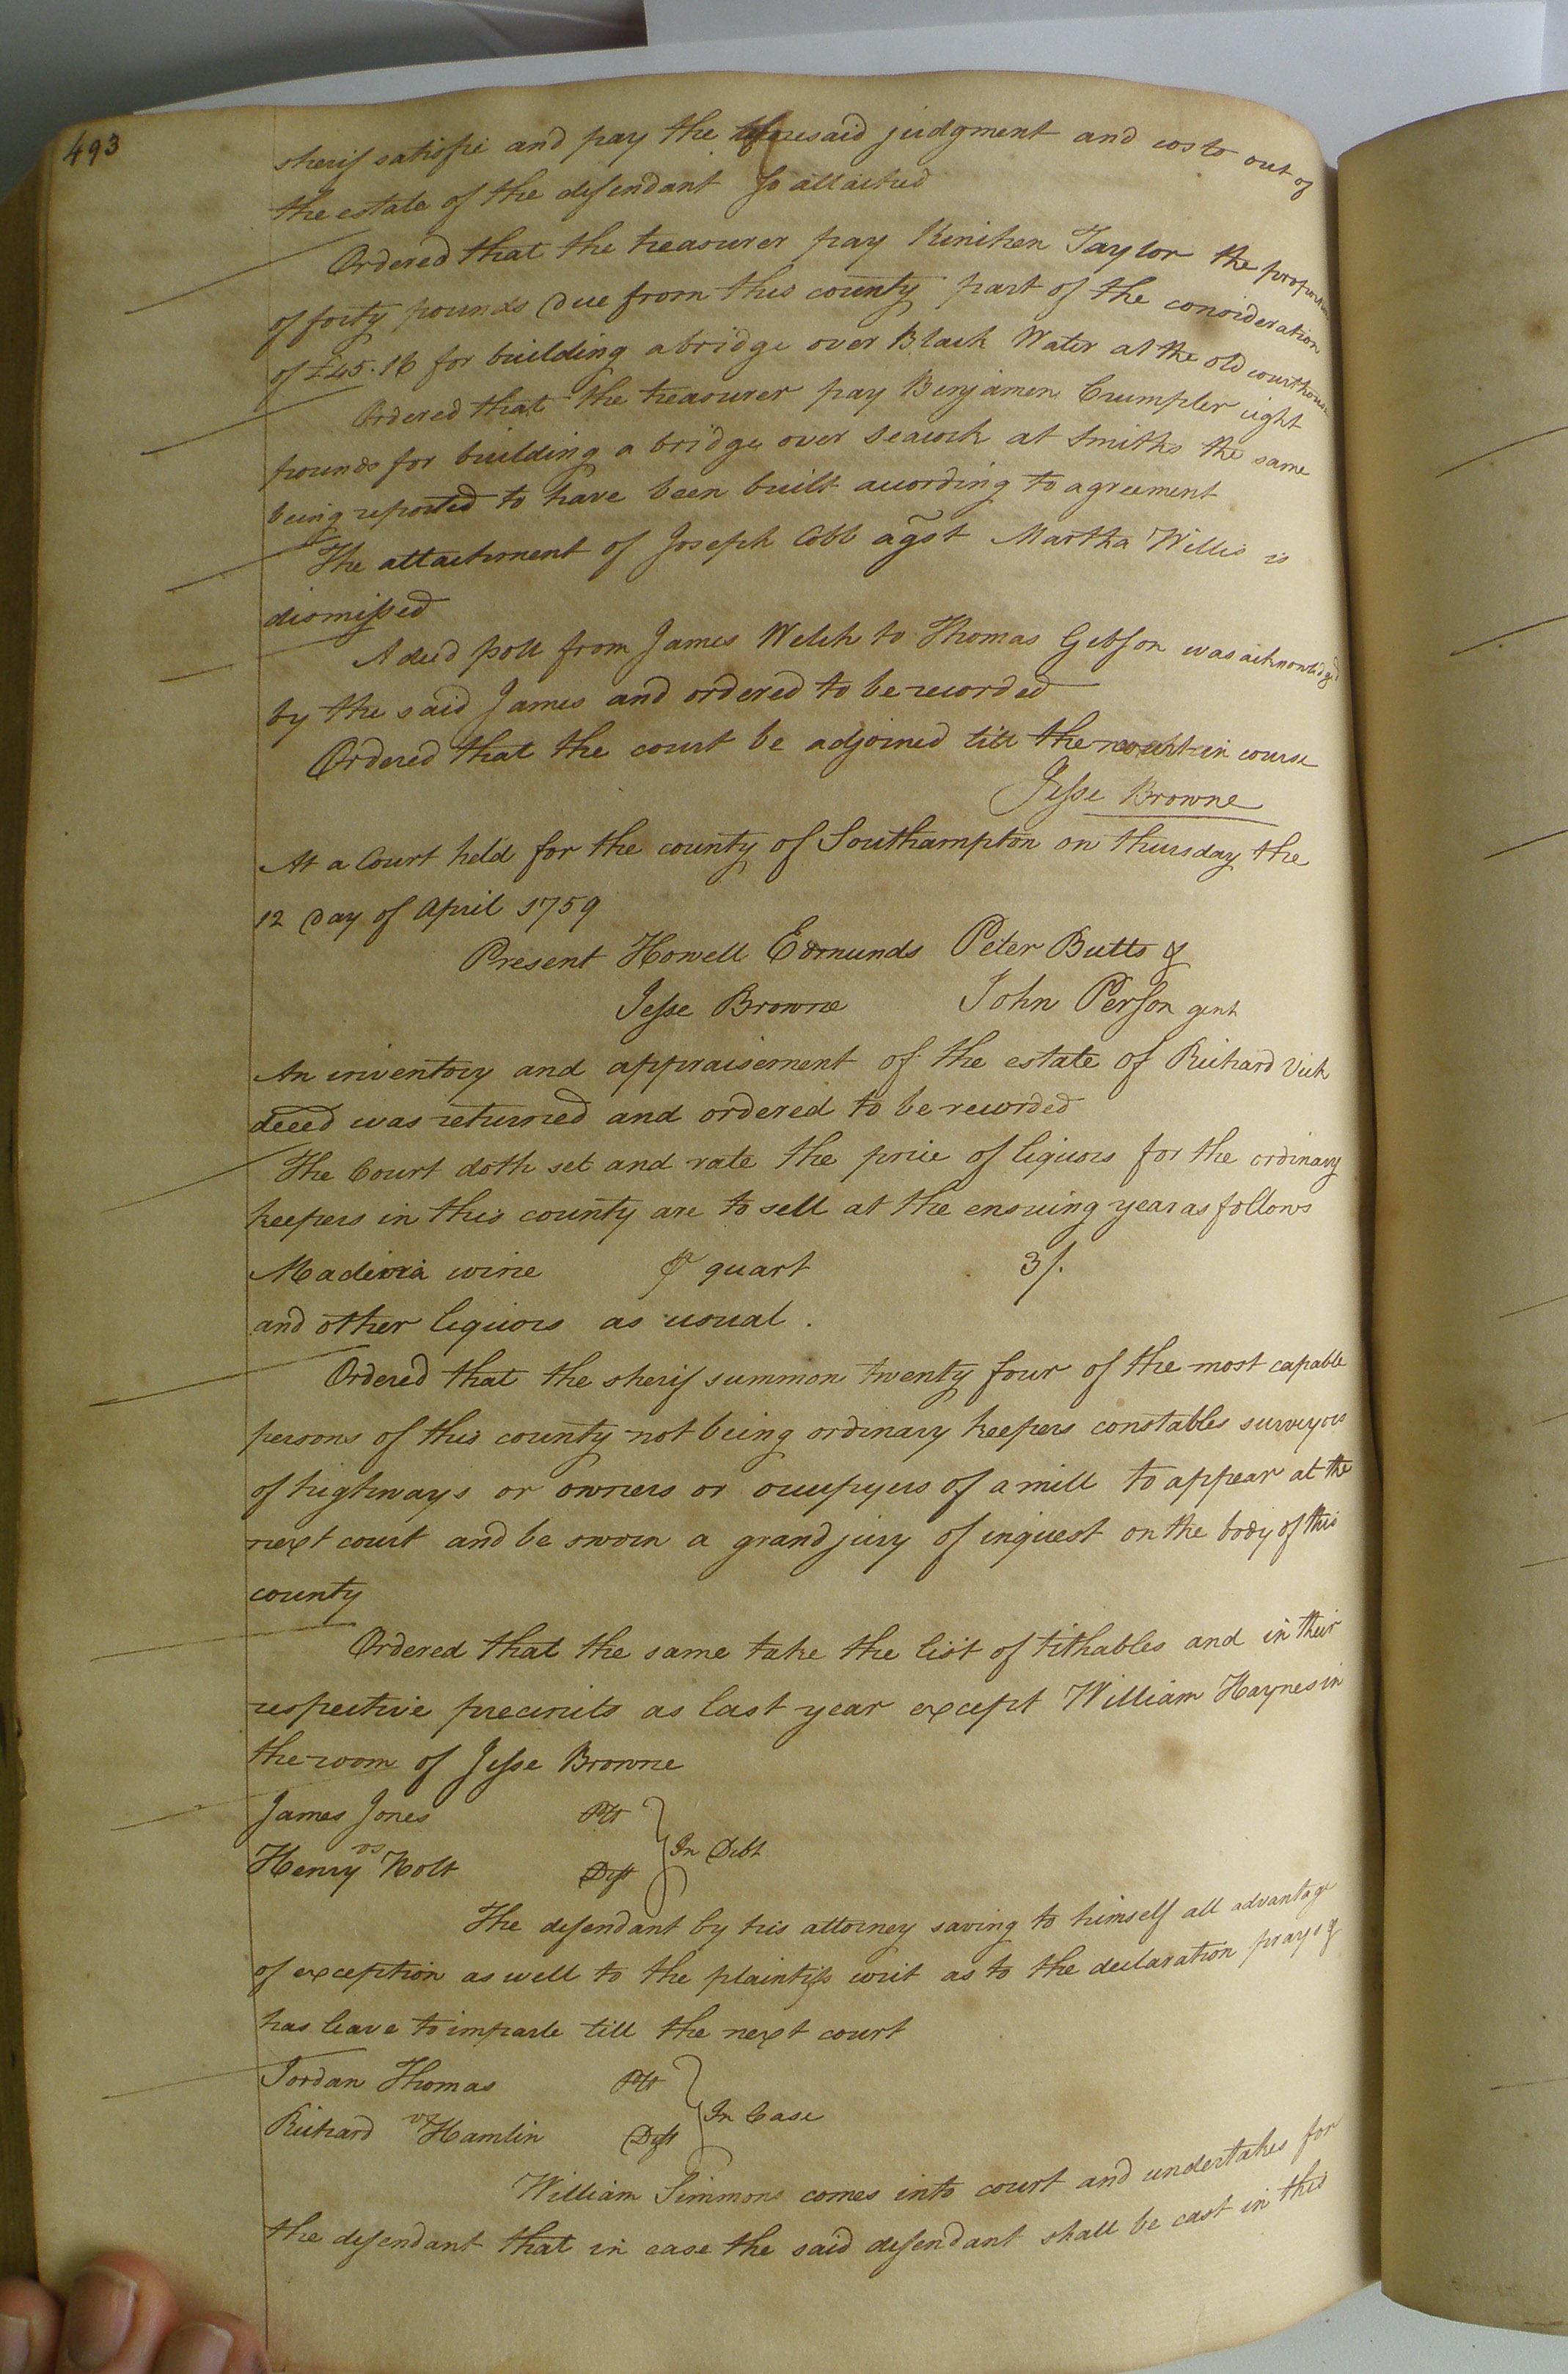 493
sherif satisfie and pay the aforesaid judgment and costs out of
the estate of the defendant so attached
Ordered that the treasurer pay Kinchen Taylor the proportion
of forty pounds due from this county part of the consideration
of £45.16 for building a bridge over Black Water at the old courthouse
Ordered that the treasurer pay Benjamen Crumpler eight
pounds for building a bridge over Seacock at Smiths the same
being reported to have been built according to agreement
The attachment of Joseph Cobb agst Martha Willis is
dismissed
A deed poll from James Welch to Thomas Gibson was acknowledged
by the said James and ordered to be recorded
Ordered that the court be adjoined till the court in course
Jesse Browne
At a Court held for the county of Southampton on thursday the
12 day of April 1759
Present Howell Edmunds Peter Butts &
Jesse Browne John Person gent
An inventory and appraisement of the estate of Richard Vick
deced was returned and ordered to be recorded
The Court doth set and rate the price of liquors for the ordinary
keepers in this county are to sell at the ensuing year as follows
Madeira wine ⅌ quart 3/.
and other liquors as usual.
Ordered that the sherif summon twenty four of the most capable
persons of this county not being ordinary keepers constables surveyors
of highways or owners or occupyers of a mill to appear at the
next court and be sworn a grand jury of inquest on the body of this
county
Ordered that the same take the list of tithables and in their
respective precincts as last year except William Haynes in
the room of Jesse Browne
James Jones Plt
vs In Debt
Henry Holt Deft
The defendant by his attorney saving to himself all advantage
of exception as well to the plaintifs writ as to the declaration prays &
has leave to imparle till the next court
Jordan Thomas Plt
vs In Case
Richard Hamlin Deft
William Simmons comes into court and undertakes for
the defendant that in case the said defendant shall be cast in this